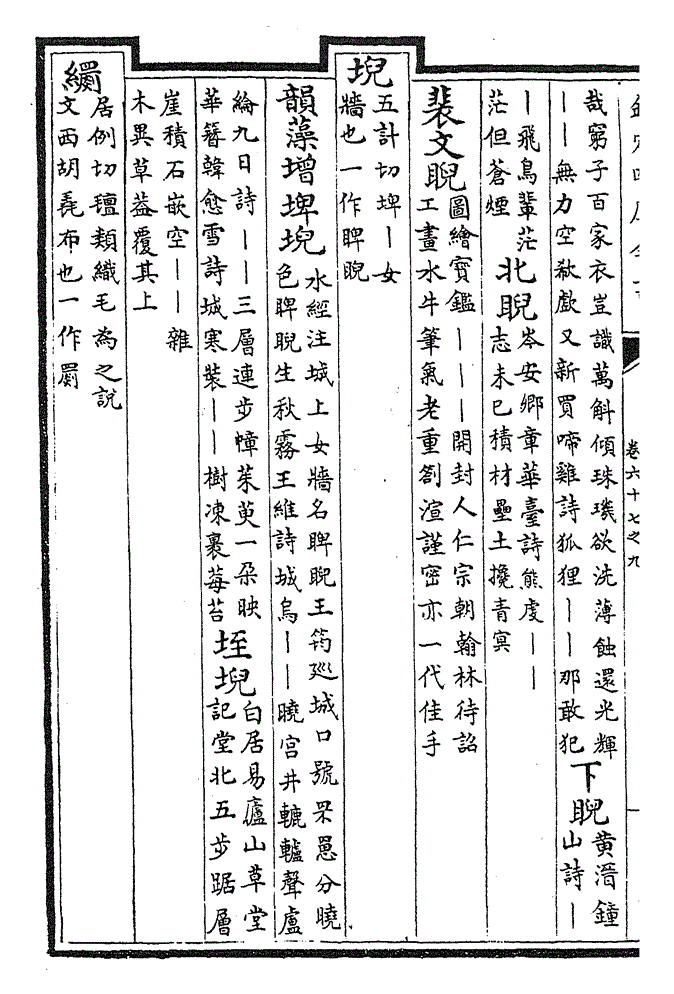 卷六十七之九
哉窮子百家衣豈識萬斛傾珠璣欲洗薄蝕還光輝
——無力空欷歔又新買啼雞詩狐狸——那敢犯
下睨
黄溍鐘
山詩—
—飛鳥輩茫
茫但蒼煙
北睨
岑安卿章華臺詩熊虔——
志未已積材壘土攙青冥
裴文睨
圖繪寶鑑———開封人仁宗朝翰林待詔
工畫水牛筆氣老重劄渲謹密亦一代佳手
堄
五計切埤—女
牆也一作睥睨
韻藻增埤堄
水經注城上女牆名睥睨王筠廵城口號罘罳分曉
色睥睨生秋霧王維詩城烏——曉宫井轆轤聲盧
綸九日詩——三層連步幛茱萸一朶映
華簪韓愈雪詩城寒裝——樹凍裹莓苔
垤堄
白居易廬山草堂
記堂北五步踞層
崖積石嵌空——雜
木異草葢覆其上
居例切氊類織毛為之說
文西胡毳布也一作罽